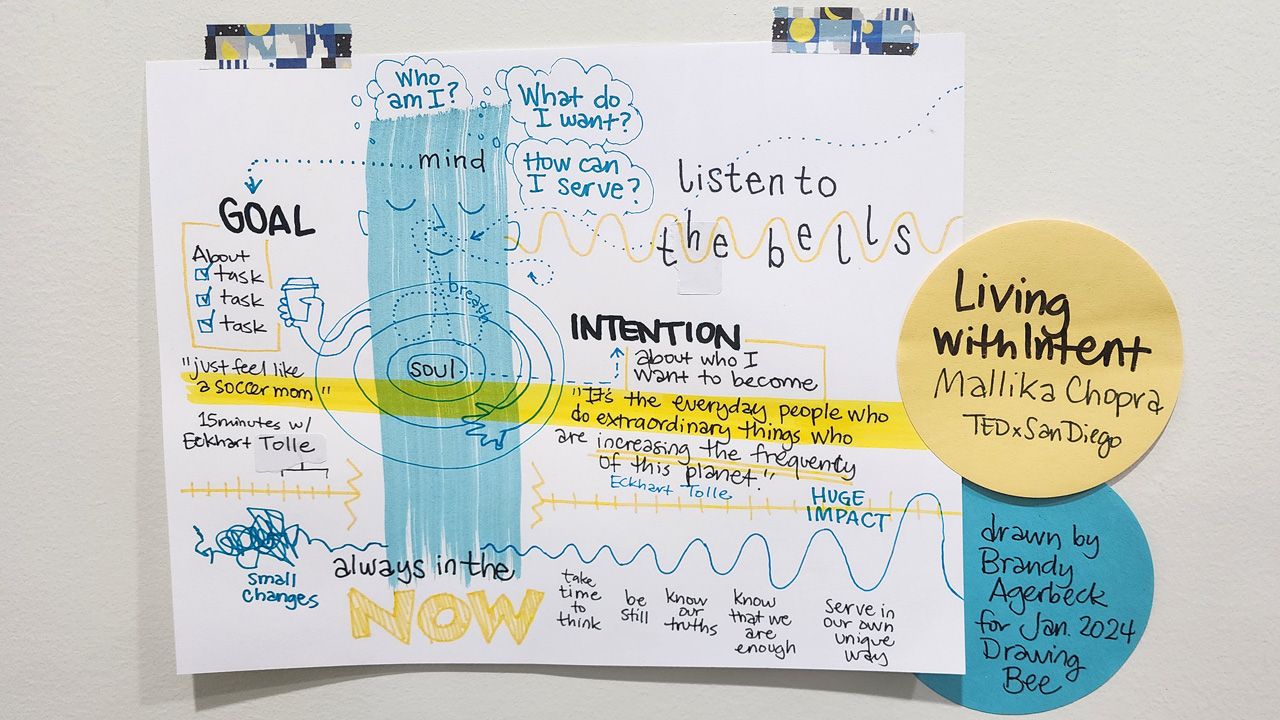 Who
am I?
What do
I want?
How can
I serve?
mind
listen to
the bells
GOAL
About
task
task
task
breath
soul
INTENTION
about who I
want to become
"just feel like
a soccer mom"
15minutes w/
Eckhart Tolle
"It's the everyday people who
do extraordinary things who
are increasing the frequency
of this planet."
Eckhart Tolle
HUGE
IMPACT
small
changes
always in the
NOW
take
time
to
think
be
still
know
our
truths
know
that we
are
enough
Serve in
our own
unique
way
Living
with Intent
Mallika Chopra
TEDxSanDiego
drawn by
Brandy
Agerbeck
for Jan. 2024
Drawing
Bee